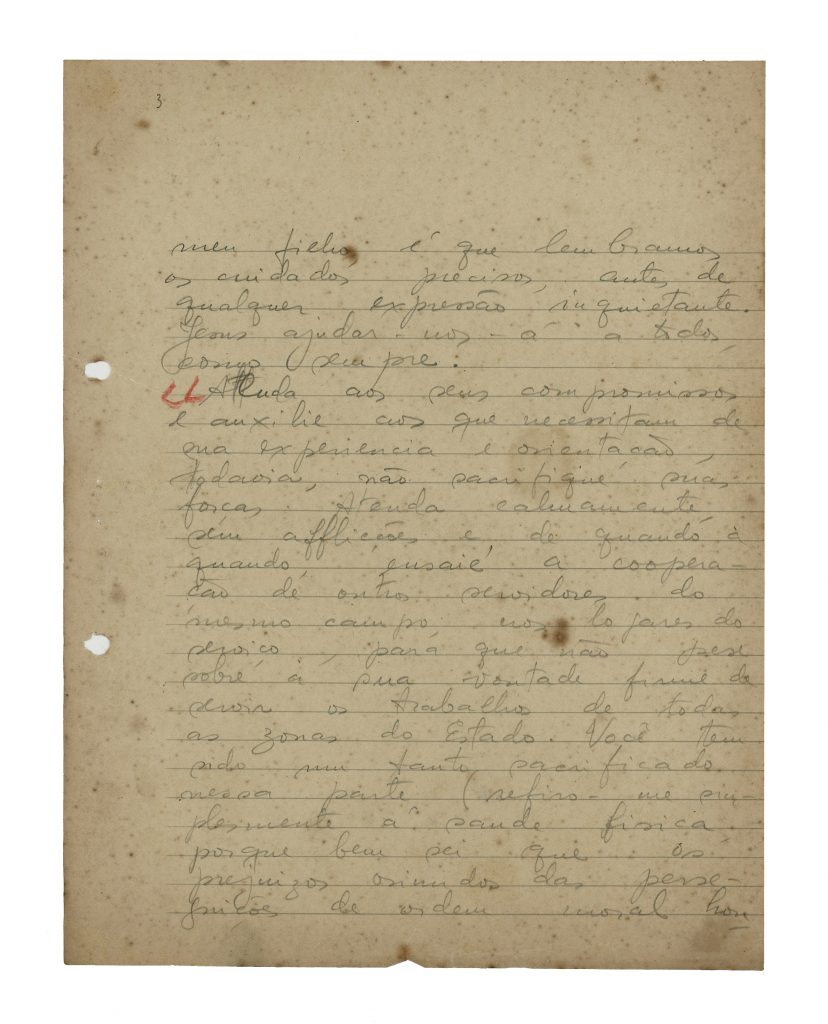 3
meu filho, é que lembramos
os cuidados precisos, antes de
qualquer expressão inquietante.
Jesus ajudar-nos-á a todos,
como sempre.
Atenda aos seus compromissos
e auxilie aos que necessitam de
sua experiencia e orientação,
todavia, não sacrifique suas
forças. Atenda calmamente,
sem afflicções e de quando à
quando, ensaie a coopera-
ção de outros servidores do
mesmo campo, nos logares do
serviço, para que não pese
sobre a sua vontade firme de
servir os trabalhos de todas
as zonas do Estado. Você tem
sido um tanto sacrificado
nessa parte (refiro-me sim-
plesmente á saude fisica
porque bem sei que os
prejuizos oriundos das perse-
guições de ordem moral hon